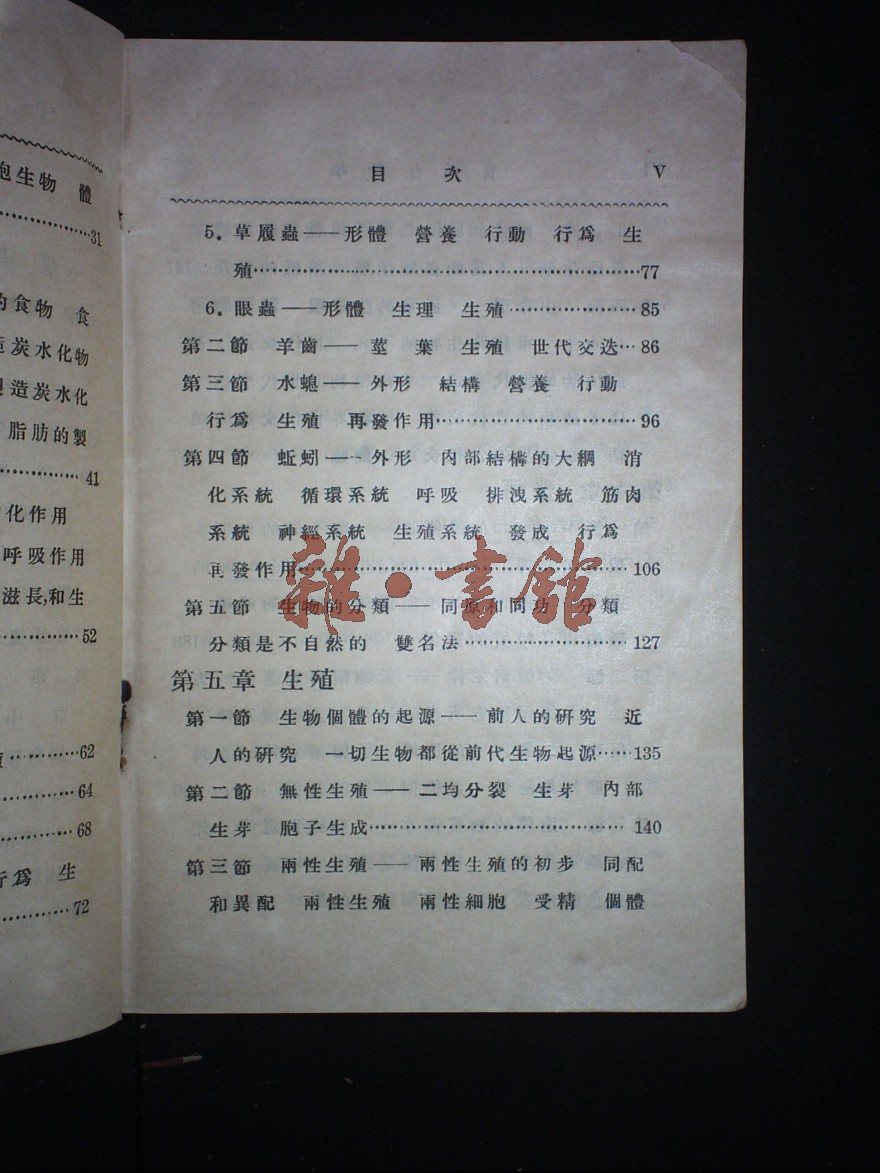 胞生物 體
……31
的食物 食
造炭水化物
製造炭水化
脂肪的製
……41
化作用
呼吸作用
滋長,和生
……52
……62
……64
……68
行爲 生
……72
目 次 V
5. 草履蟲——形體 營養 行動 行爲 生
殖……77
6. 眼蟲——形體 生理 生殖……85
第二節 羊齒——莖 葉 生殖 世代交迭…86
第三節 水螅——外形 結構 營養 行動
行爲 生殖 再發作用……96
第四節 蚯蚓——外形 內部結構的大綱 消
化系統 循環系統 呼吸 排洩系統 筋肉
系統 神經系統 生殖系統 發成 行爲
再發作用……106
第五節 生物的分類——同原和同功 分類
分類是不自然的 雙名法……127
第五章 生殖
第一節 生物個體的起源——前人的硏究 近
人的硏究 一切生物都從前代生物起源……135
第二節 無性生殖——二均分裂 生芽 內部
生芽 胞子生成……140
第三節 兩性生殖——兩性生殖的初步 同配
和異配 兩性生殖 兩性細胞 受精 個體
雜·書館